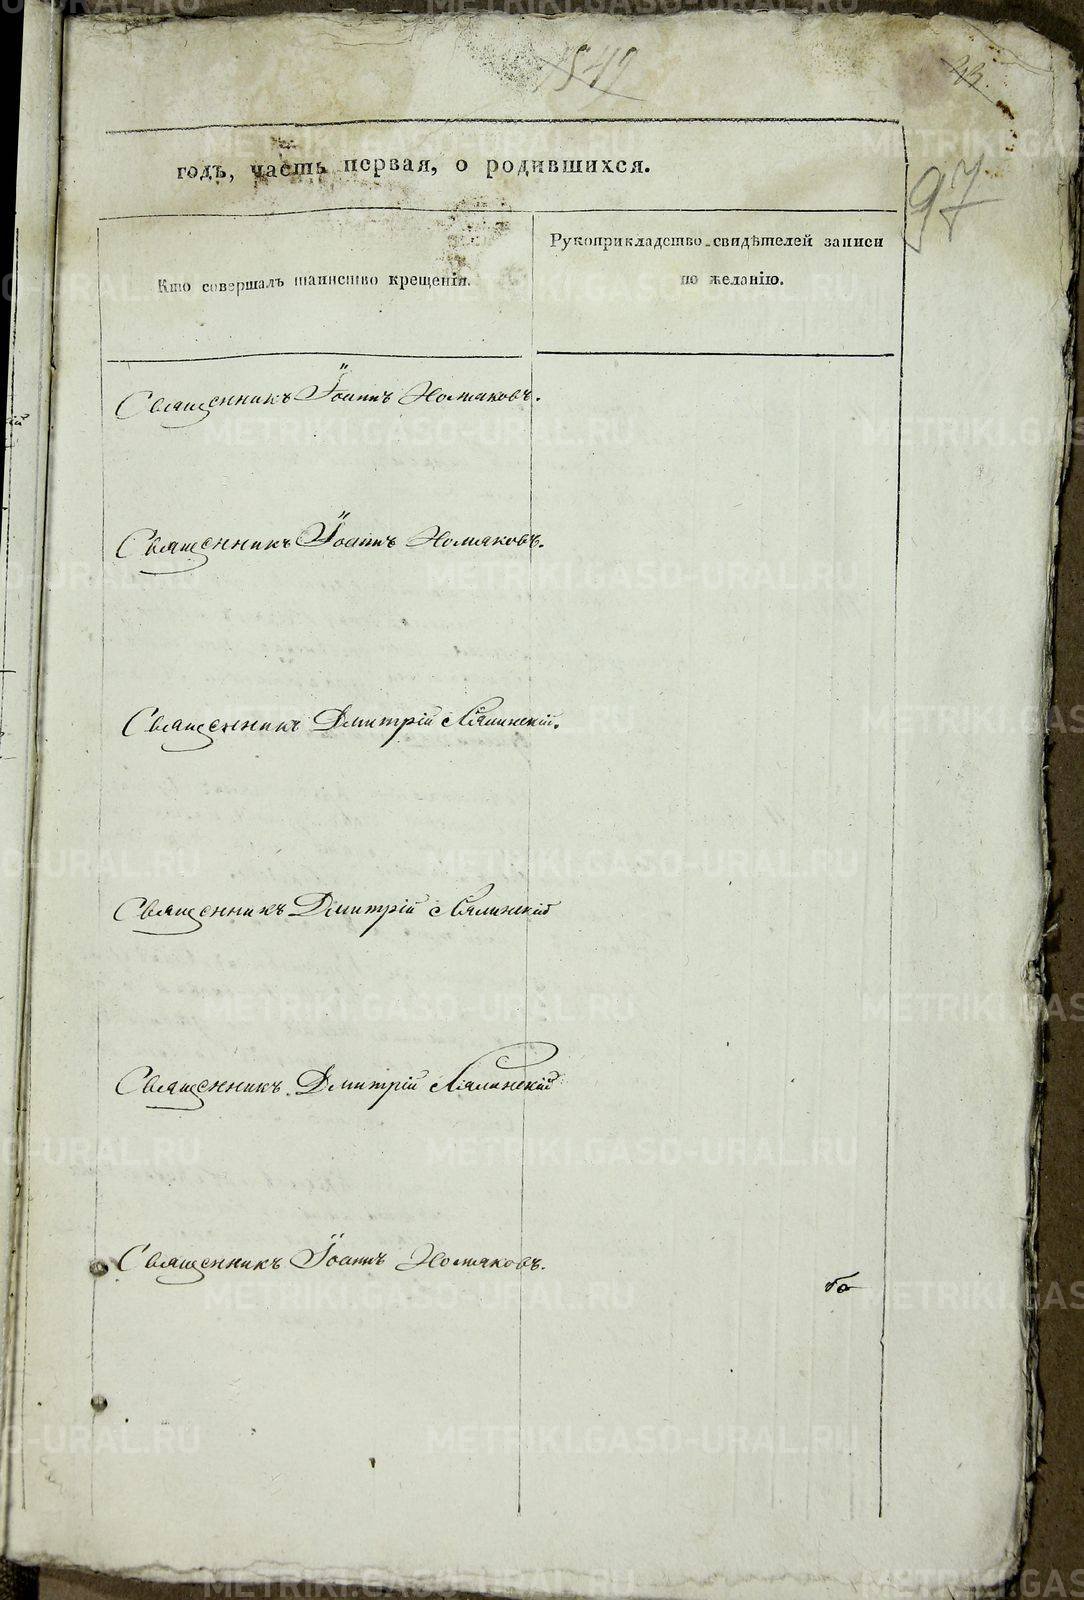 1842
43.
97
годъ, часть первая, о родившихся.
Кто совершалъ таинство крещенія.
Рукоприкладство свидѣтелей записи
по желанію.
Священникъ Іоаннъ Хомяковъ.
Священникъ Іоаннъ Хомяковъ.
Священникъ Дмитрій Лялинскій.
Священникъ Дмитрій Лялинскій
Священникъ Дмитрій Лялинскій
Священникъ Іоаннъ Хомяковъ.
METRIKI.GASO-URAL.RU